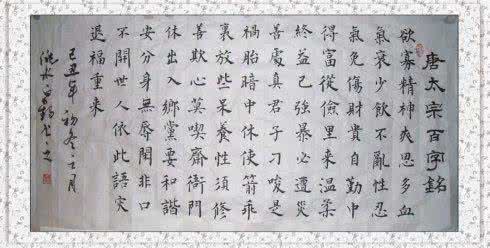 唐太宗百字銘
欲寡精神爽思多血
氣衰少飲不亂性忍
氣免傷財貴自勤中
得富從儉里來温柔
終益己強暴必遭災
善處真君子刁唆是
禍胎暗中休使箭乖
裏放些呆養性須修
善欺心莫喫齋衙門
休出入鄉黨要和諧
安分身無辱閒非口
不開世人依此語灾
退福重來
己丑年初冬月